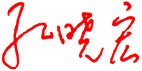 孔晓宏